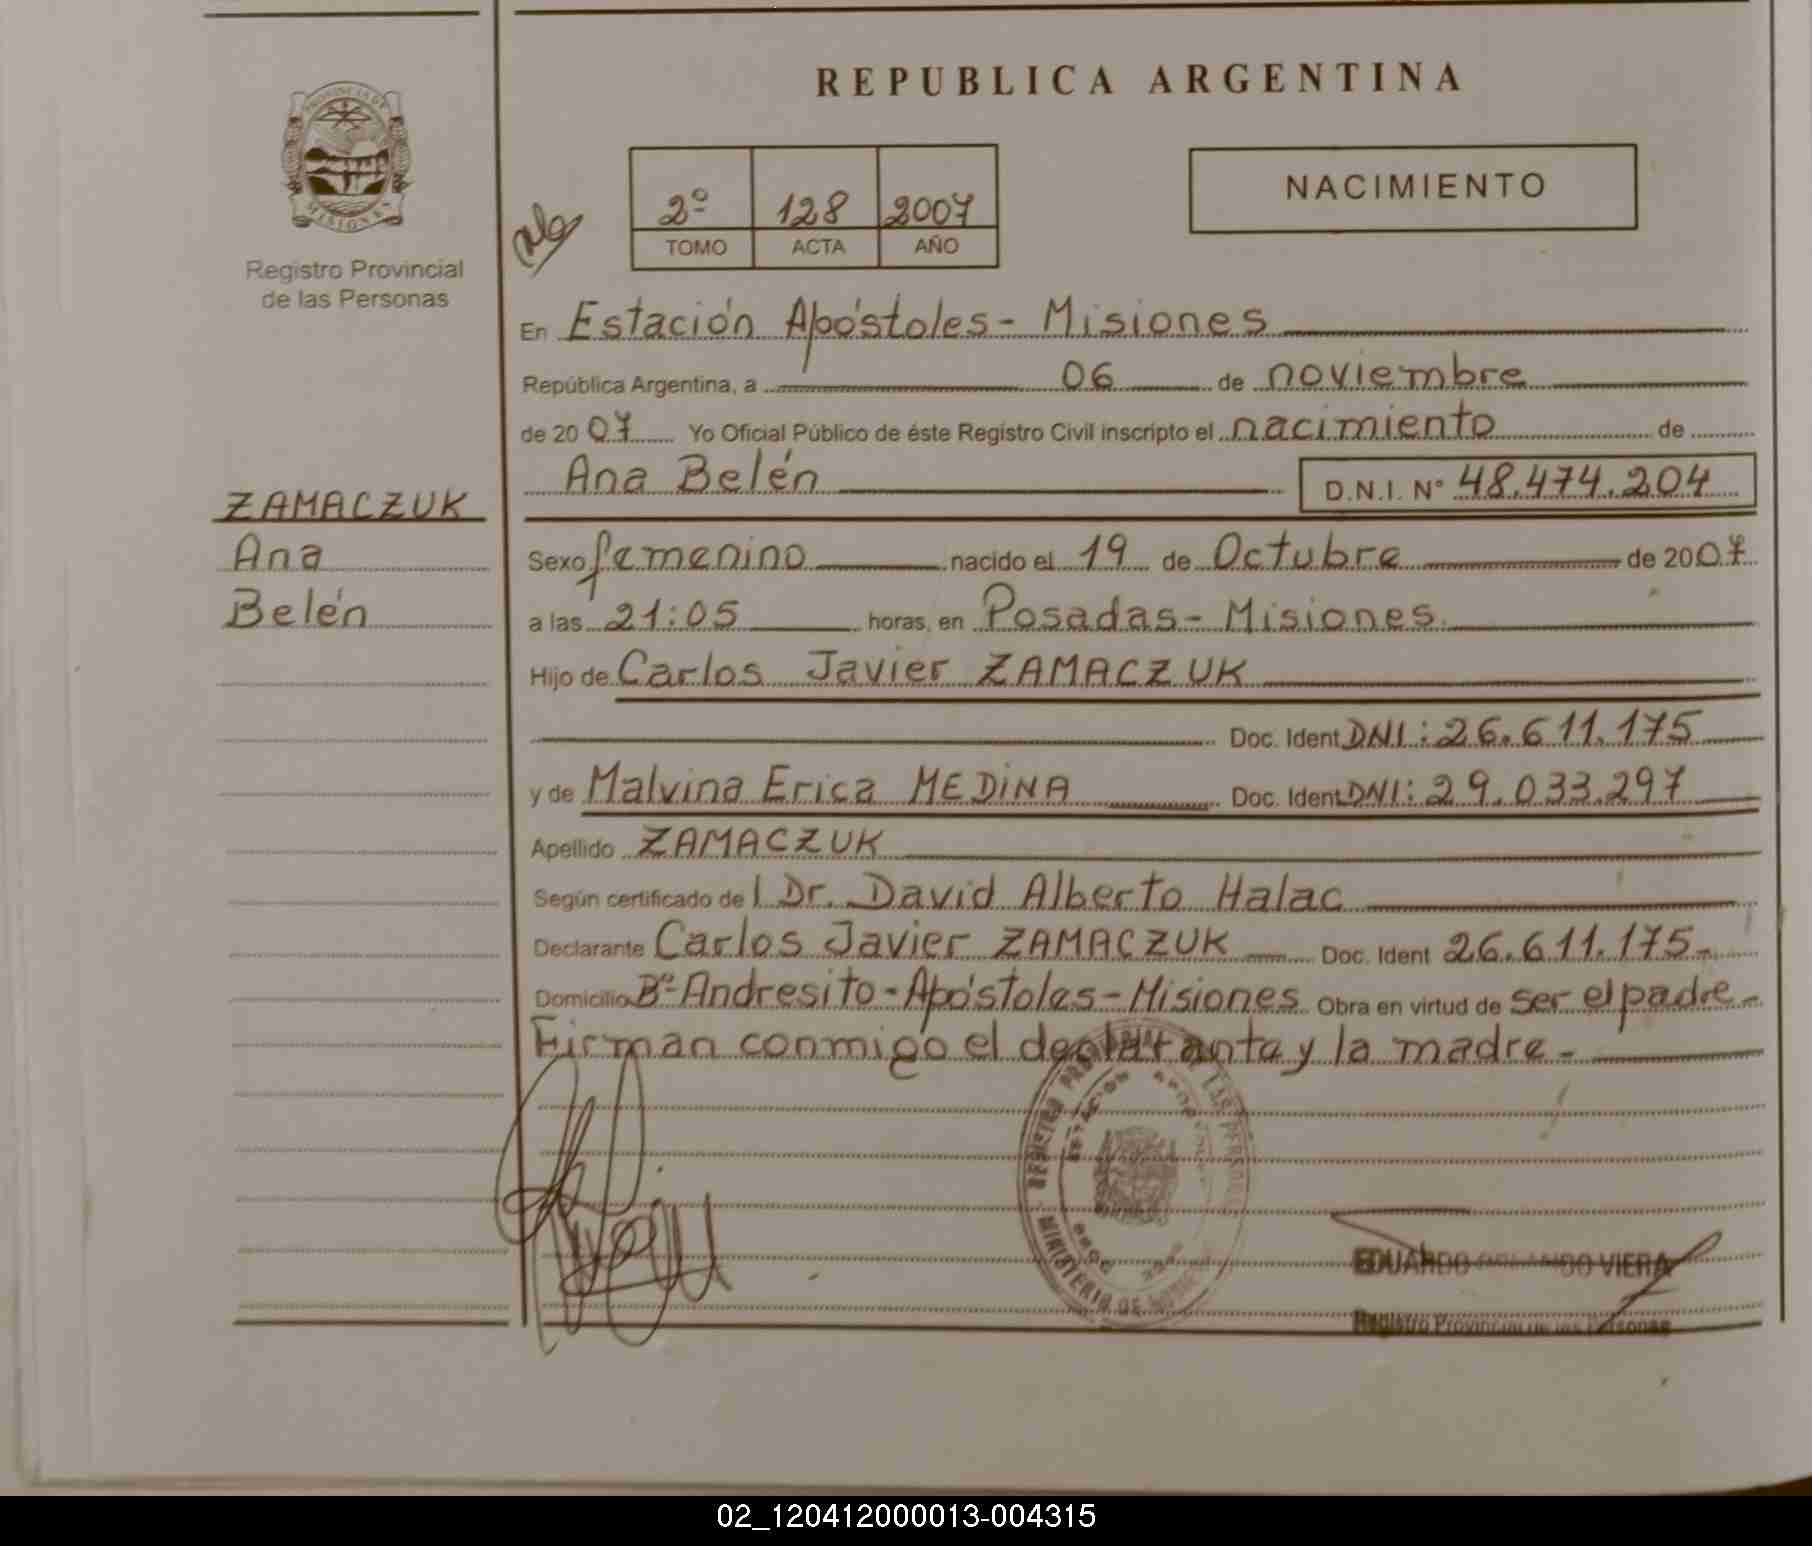 REPUBLICA ARGENTINA
PROVINCIA DE
MISIONES
Registro Provincial
de las Personas
2º 128 2007
TOMO ACTA AÑO
NACIMIENTO
En Estación Apóstoles - Misiones
República Argentina, a 06 de noviembre
de 20 07 Yo Oficial Público de éste Registro Civil inscripto el nacimiento de
Ana Belén D.N.I. Nº 48.474.204
ZAMACZUK
Ana
Belén
Sexo femenino nacido el 19 de Octubre de 2007
a las 21:05 horas, en Posadas - Misiones
Hijo de Carlos Javier ZAMACZUK
Doc. Ident DNI: 26.611.175
y de Malvina Erica MEDINA Doc. Ident DNI: 29.033.297
Apellido ZAMACZUK
Según certificado de l Dr. David Alberto Halac
Declarante Carlos Javier ZAMACZUK Doc. Ident 26.611.175.-
Domicilio Bº Andresito - Apóstoles - Misiones Obra en virtud de ser el padre -
Firman conmigo el declarante y la madre -
REGISTRO PROVINCIAL DE LAS PERSONAS
ESTACION
MINISTERIO DE
EDUARDO VIERA
Registro Provincial de las Personas
02_120412000013-004315